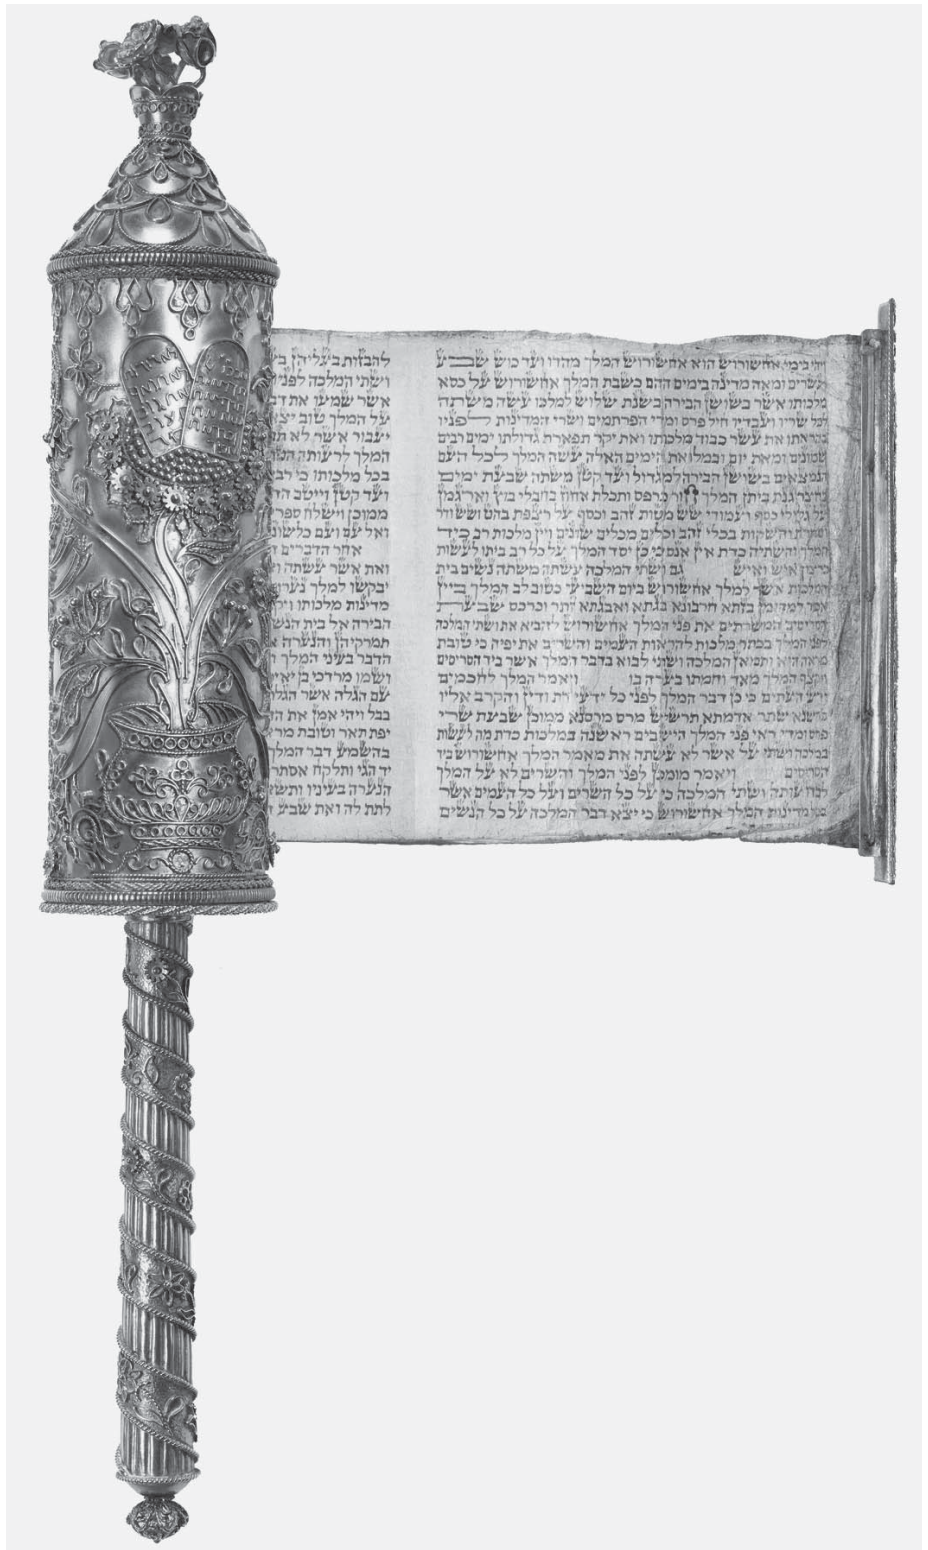 ויהי בימי אחשורוש הוא אחשורוש המלך מהדו ועד כוש שבע
ועשרים ומאה מדינה בימים ההם כשבת המלך אחשורוש על כסא
מלכותו אשר בשושן הבירה בשנת שלוש למלכו עשה משתה
לכל שריו ועבדיו חיל פרס ומדי הפרתמים ושרי המדינות לפניו
בהראתו את עשר כבוד מלכותו ואת יקר תפארת גדולתו ימים רבים
שמונים ומאת יום ובמלואת הימים האלה עשה המלך לכל העם
הנמצאים בשושן הבירה למגדול ועד קטן משתה שבעת ימים
בחצר גנת ביתן המלך חור כרפס ותכלת אחוז בחבלי בוץ וארגמן
על גלילי כסף ועמודי שש מטות זהב וכסף על רצפת בהט ושש ודר
וסחרת והשקות בכלי זהב וכלים מכלים שונים ויין מלכות רב כיד
המלך והשתיה כדת אין אנס כי כן יסד המלך על כל רב ביתו לעשות
כרצון איש ואיש גם ושתי המלכה עשתה משתה נשים בית
המלכות אשר למלך אחשורוש ביום השביעי כטוב לב המלך ביין
אמר למהומן בזתא חרבונא בגתא ואבגתא זתר וכרכס שבעת
הסריסים המשרתים את פני המלך אחשורוש להביא את ושתי המלכה
לפני המלך בכתר מלכות להראות העמים והשרים את יפיה כי טובת
מראה היא ותמאן המלכה ושתי לבוא בדבר המלך אשר ביד הסריסים
ויקצף המלך מאד וחמתו בערה בו ויאמר המלך לחכמים
ידעי העתים כי כן דבר המלך לפני כל ידעי דת ודין והקרב אליו
כרשנא שתר אדמתא תרשיש מרס מרסנא ממוכן שבעת שרי
פרס ומדי ראי פני המלך הישבים ראשנה במלכות כדת מה לעשות
במלכה ושתי על אשר לא עשתה את מאמר המלך אחשורוש ביד
הסריסים ויאמר מומכן לפני המלך והשרים לא על המלך
לבדו עותה ושתי המלכה כי על כל השרים ועל כל העמים אשר
בכל מדינות המלך אחשורוש כי יצא דבר המלכה על כל הנשים
להבזות בעליהן
ושתי המלכה
אשר שמעו את
על המלך טוב
יעבור אשר לא
המלך לרעותה
בכל מלכותו כי
ועד קטן וייטב
ממוכן וישלח
ואל עם ועם
אחר הדברים
ואת אשר עשתה
יבקשו למלך
מדינות מלכותו
הבירה אל בית
תמרקיהן והנערה
הדבר בעיני המלך
ושמו מרדכי בן
עם הגלה אשר
בבל ויהי אמן את
יפת תאר וטובת
בהשמע דבר המלך
יד הגי ותלקח אסתר
הנערה בעיניו
לתת לה ואת שבע